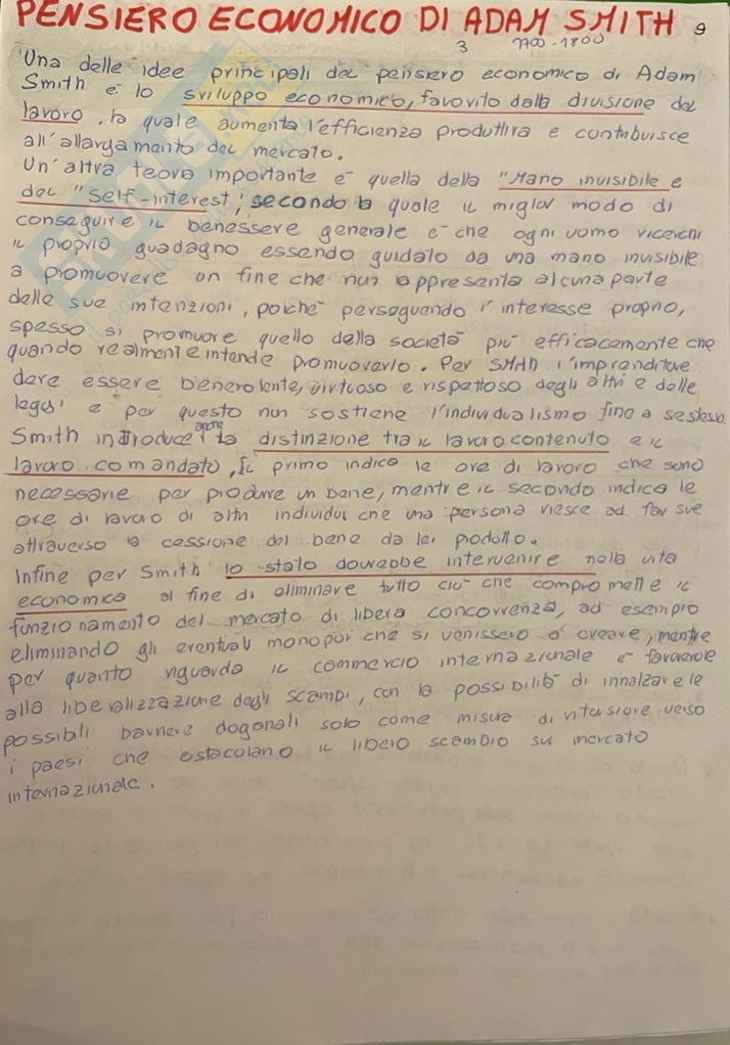 PENSIERO ECONOMICO DI ADAM SMITH 9
3 1700-1800
Una delle idee principali del pensiero economico di Adam
Smith è lo sviluppo economico, favorito dalla divisione del
lavoro, la quale aumenta l'efficienza produttiva e contribuisce
all'allargamento del mercato.
Un'altra teoria importante è quella della "Mano invisibile e
del "Self-interest; secondo la quale il miglior modo di
conseguire il benessere generale è che ogni uomo ricerchi
il proprio guadagno essendo guidato da una mano invisibile
a promuovere un fine che non rappresenta alcuna parte
delle sue intenzioni, poiché perseguendo l'interesse proprio,
spesso si promuove quello della società più efficacemente che
quando realmente intende promuoverlo. Per Smith l'imprenditore
deve essere benevolente, virtuoso e rispettoso degli altri e delle
leggi e per questo non sostiene l'individualismo fine a se stesso.
Smith introduce anche la distinzione tra il lavoro contenuto e il
lavoro comandato, Il primo indica le ore di lavoro che sono
necessarie per produrre un bene, mentre il secondo indica le
ore di lavoro di altri individui che una persona riesce ad far sue
attraverso la cessione del bene da lei prodotto.
Infine per Smith lo stato dovrebbe intervenire nella vita
economica al fine di eliminare tutto ciò che compromette il
funzionamento del mercato di libera concorrenza, ad esempio
eliminando gli eventuali monopoli che si venissero a creare, mentre
per quanto riguarda il commercio internazionale è favorevole
alla liberalizzazione degli scambi, con la possibilità di innalzare le
possibili barriere doganali solo come misura di ritorsione verso
i paesi che ostacolano il libero scambio sul mercato
internazionale.